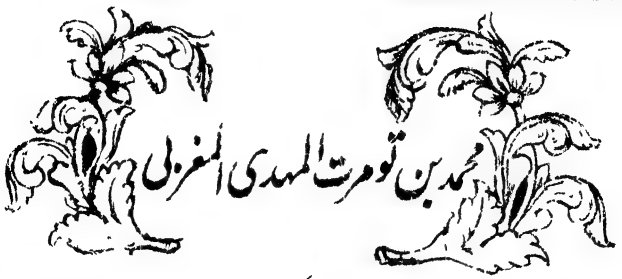 محمد بن تومرت المهدی المغربی